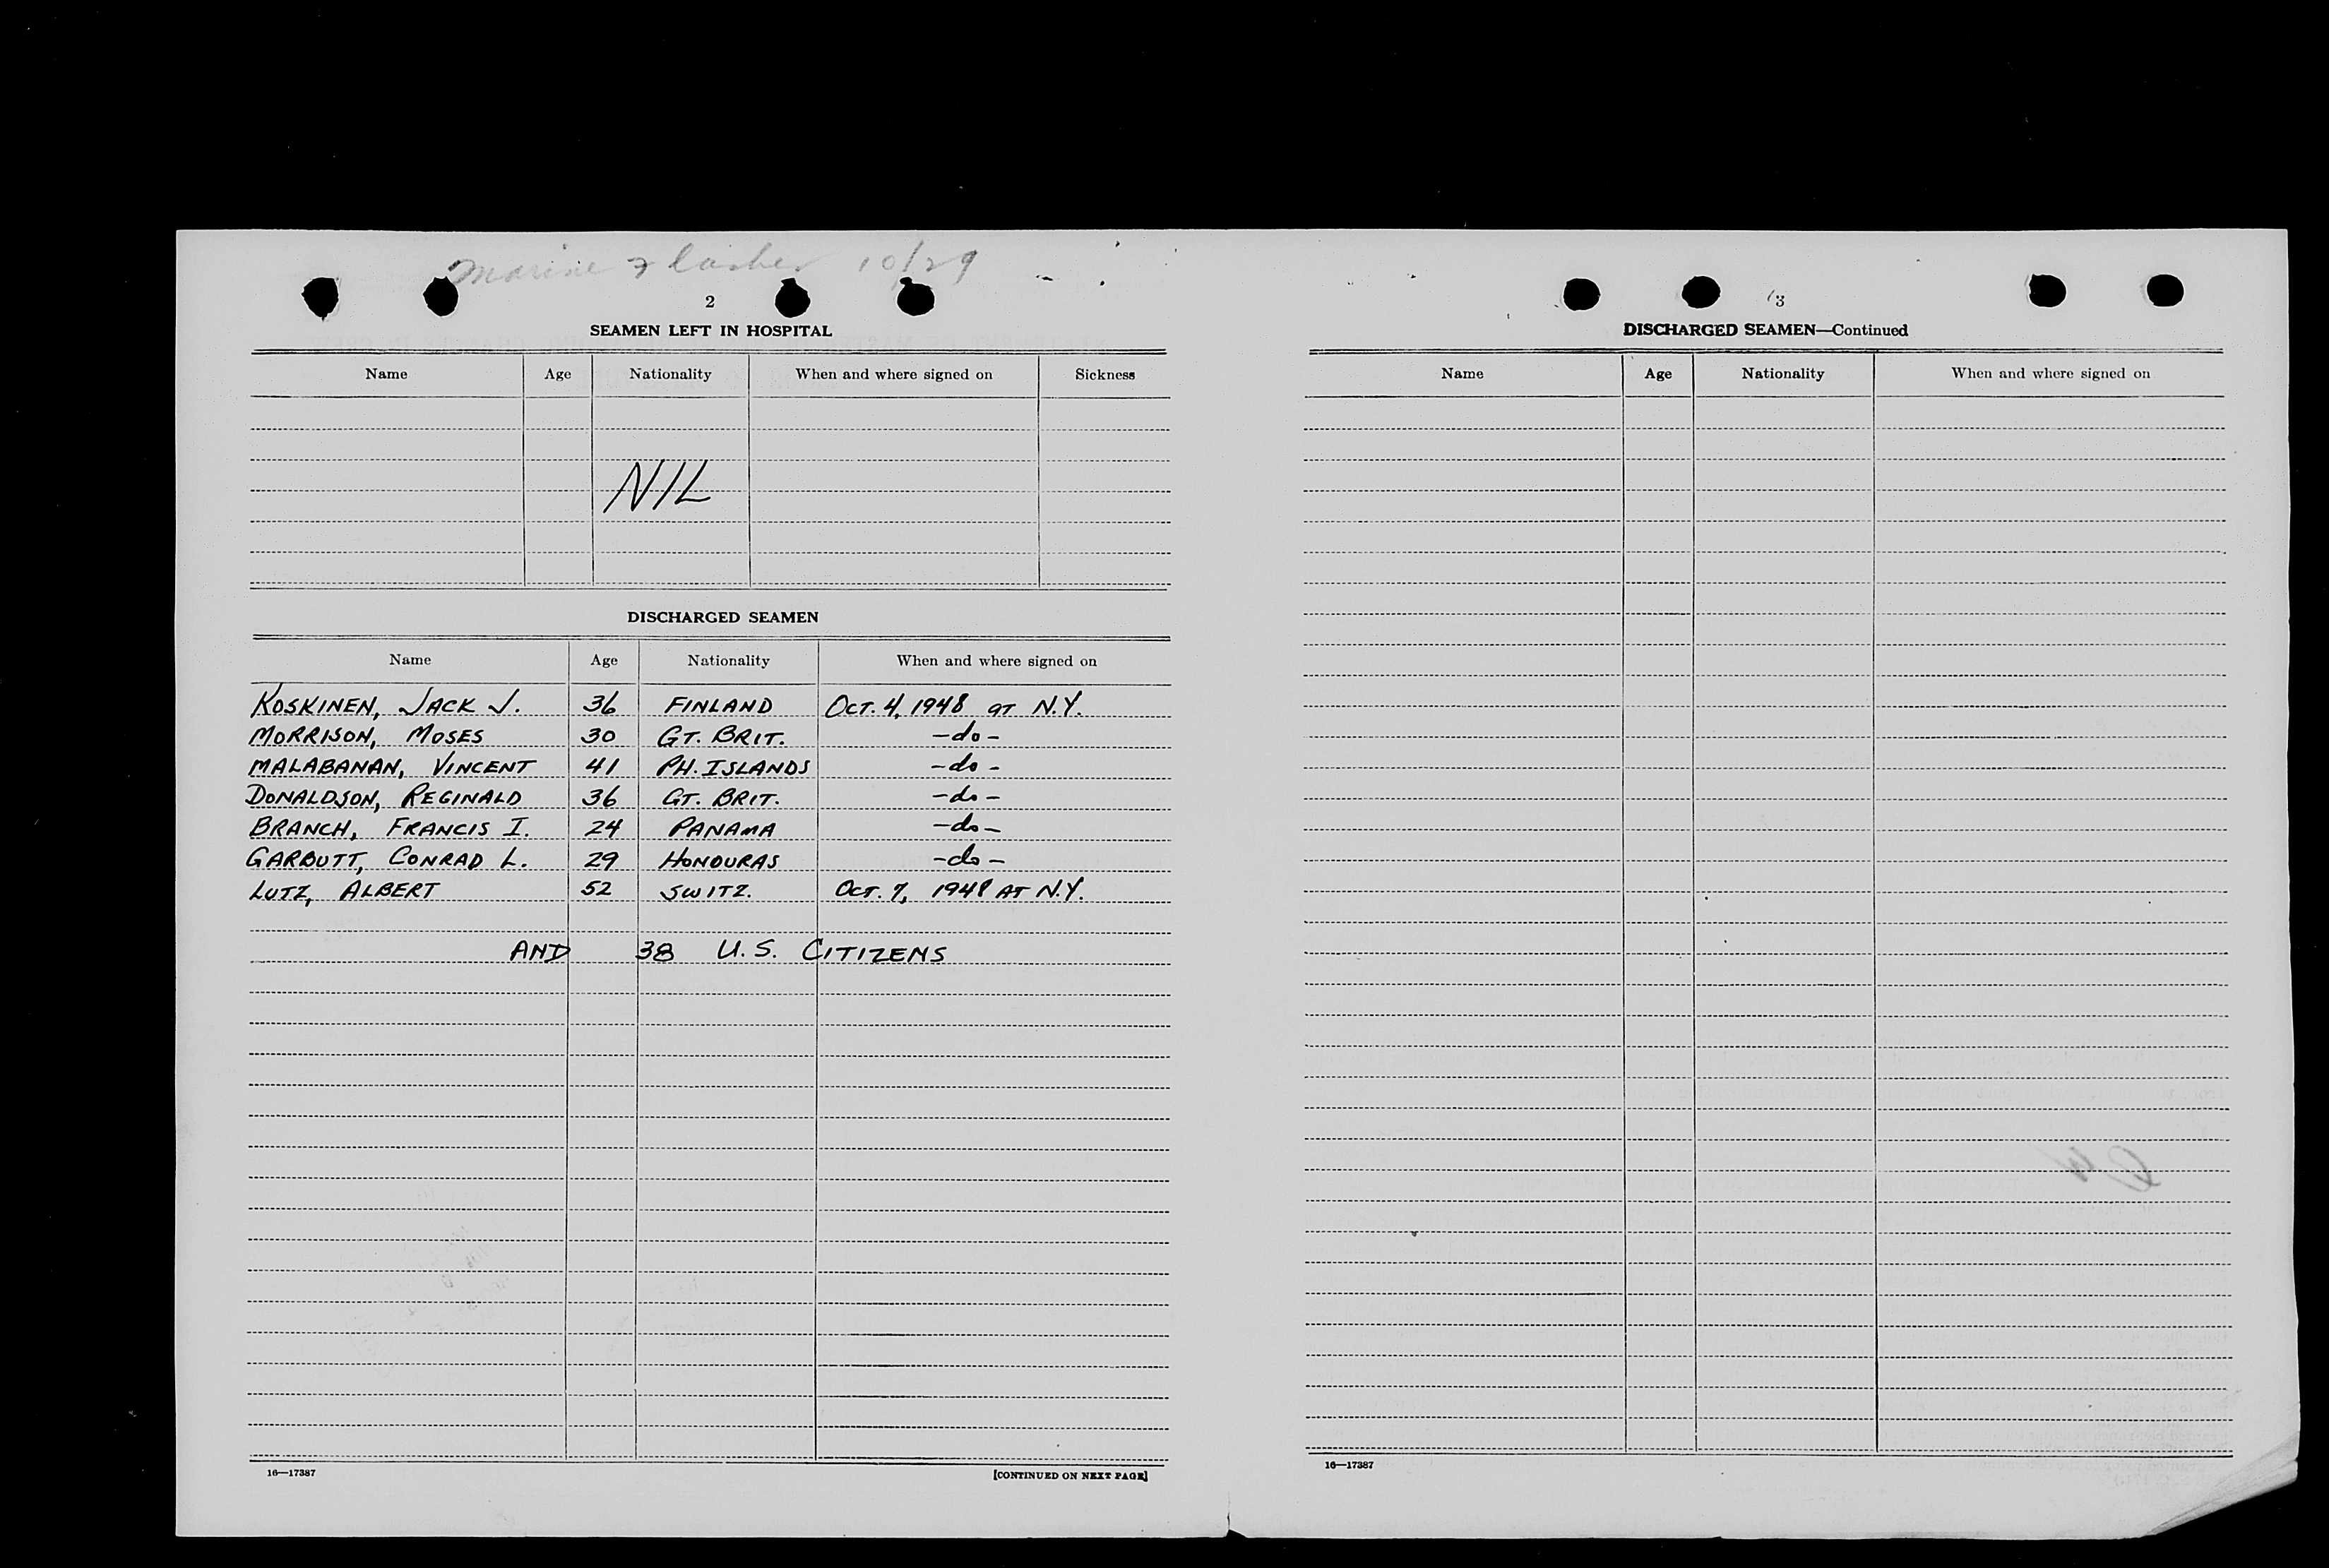 Marine Flasher 10/29
2
SEAMEN LEFT IN HOSPITAL
Name Age Nationality When and where signed on Sickness
NIL
DISCHARGED SEAMEN
Name Age Nationality When and where signed on
KOSKINEN, JACK J. 36 FINLAND OCT. 4, 1948 at N.Y.
MORRISON, MOSES 30 GT. BRIT. -do-
MALABANAN, VINCENT 41 PH. ISLANDS -do-
DONALDSON, REGINALD 36 GT. BRIT. -do-
BRANCH, FRANCIS I. 24 PANAMA -do-
GARBUTT, CONRAD L. 29 HONDURAS -do-
LUTZ, ALBERT 52 SWITZ. OCT. 7, 1948 AT N.Y.
AND 38 U.S. CITIZENS
16—17387 [CONTINUED ON NEXT PAGE]
3
DISCHARGED SEAMEN—Continued
Name Age Nationality When and where signed on
16—17387